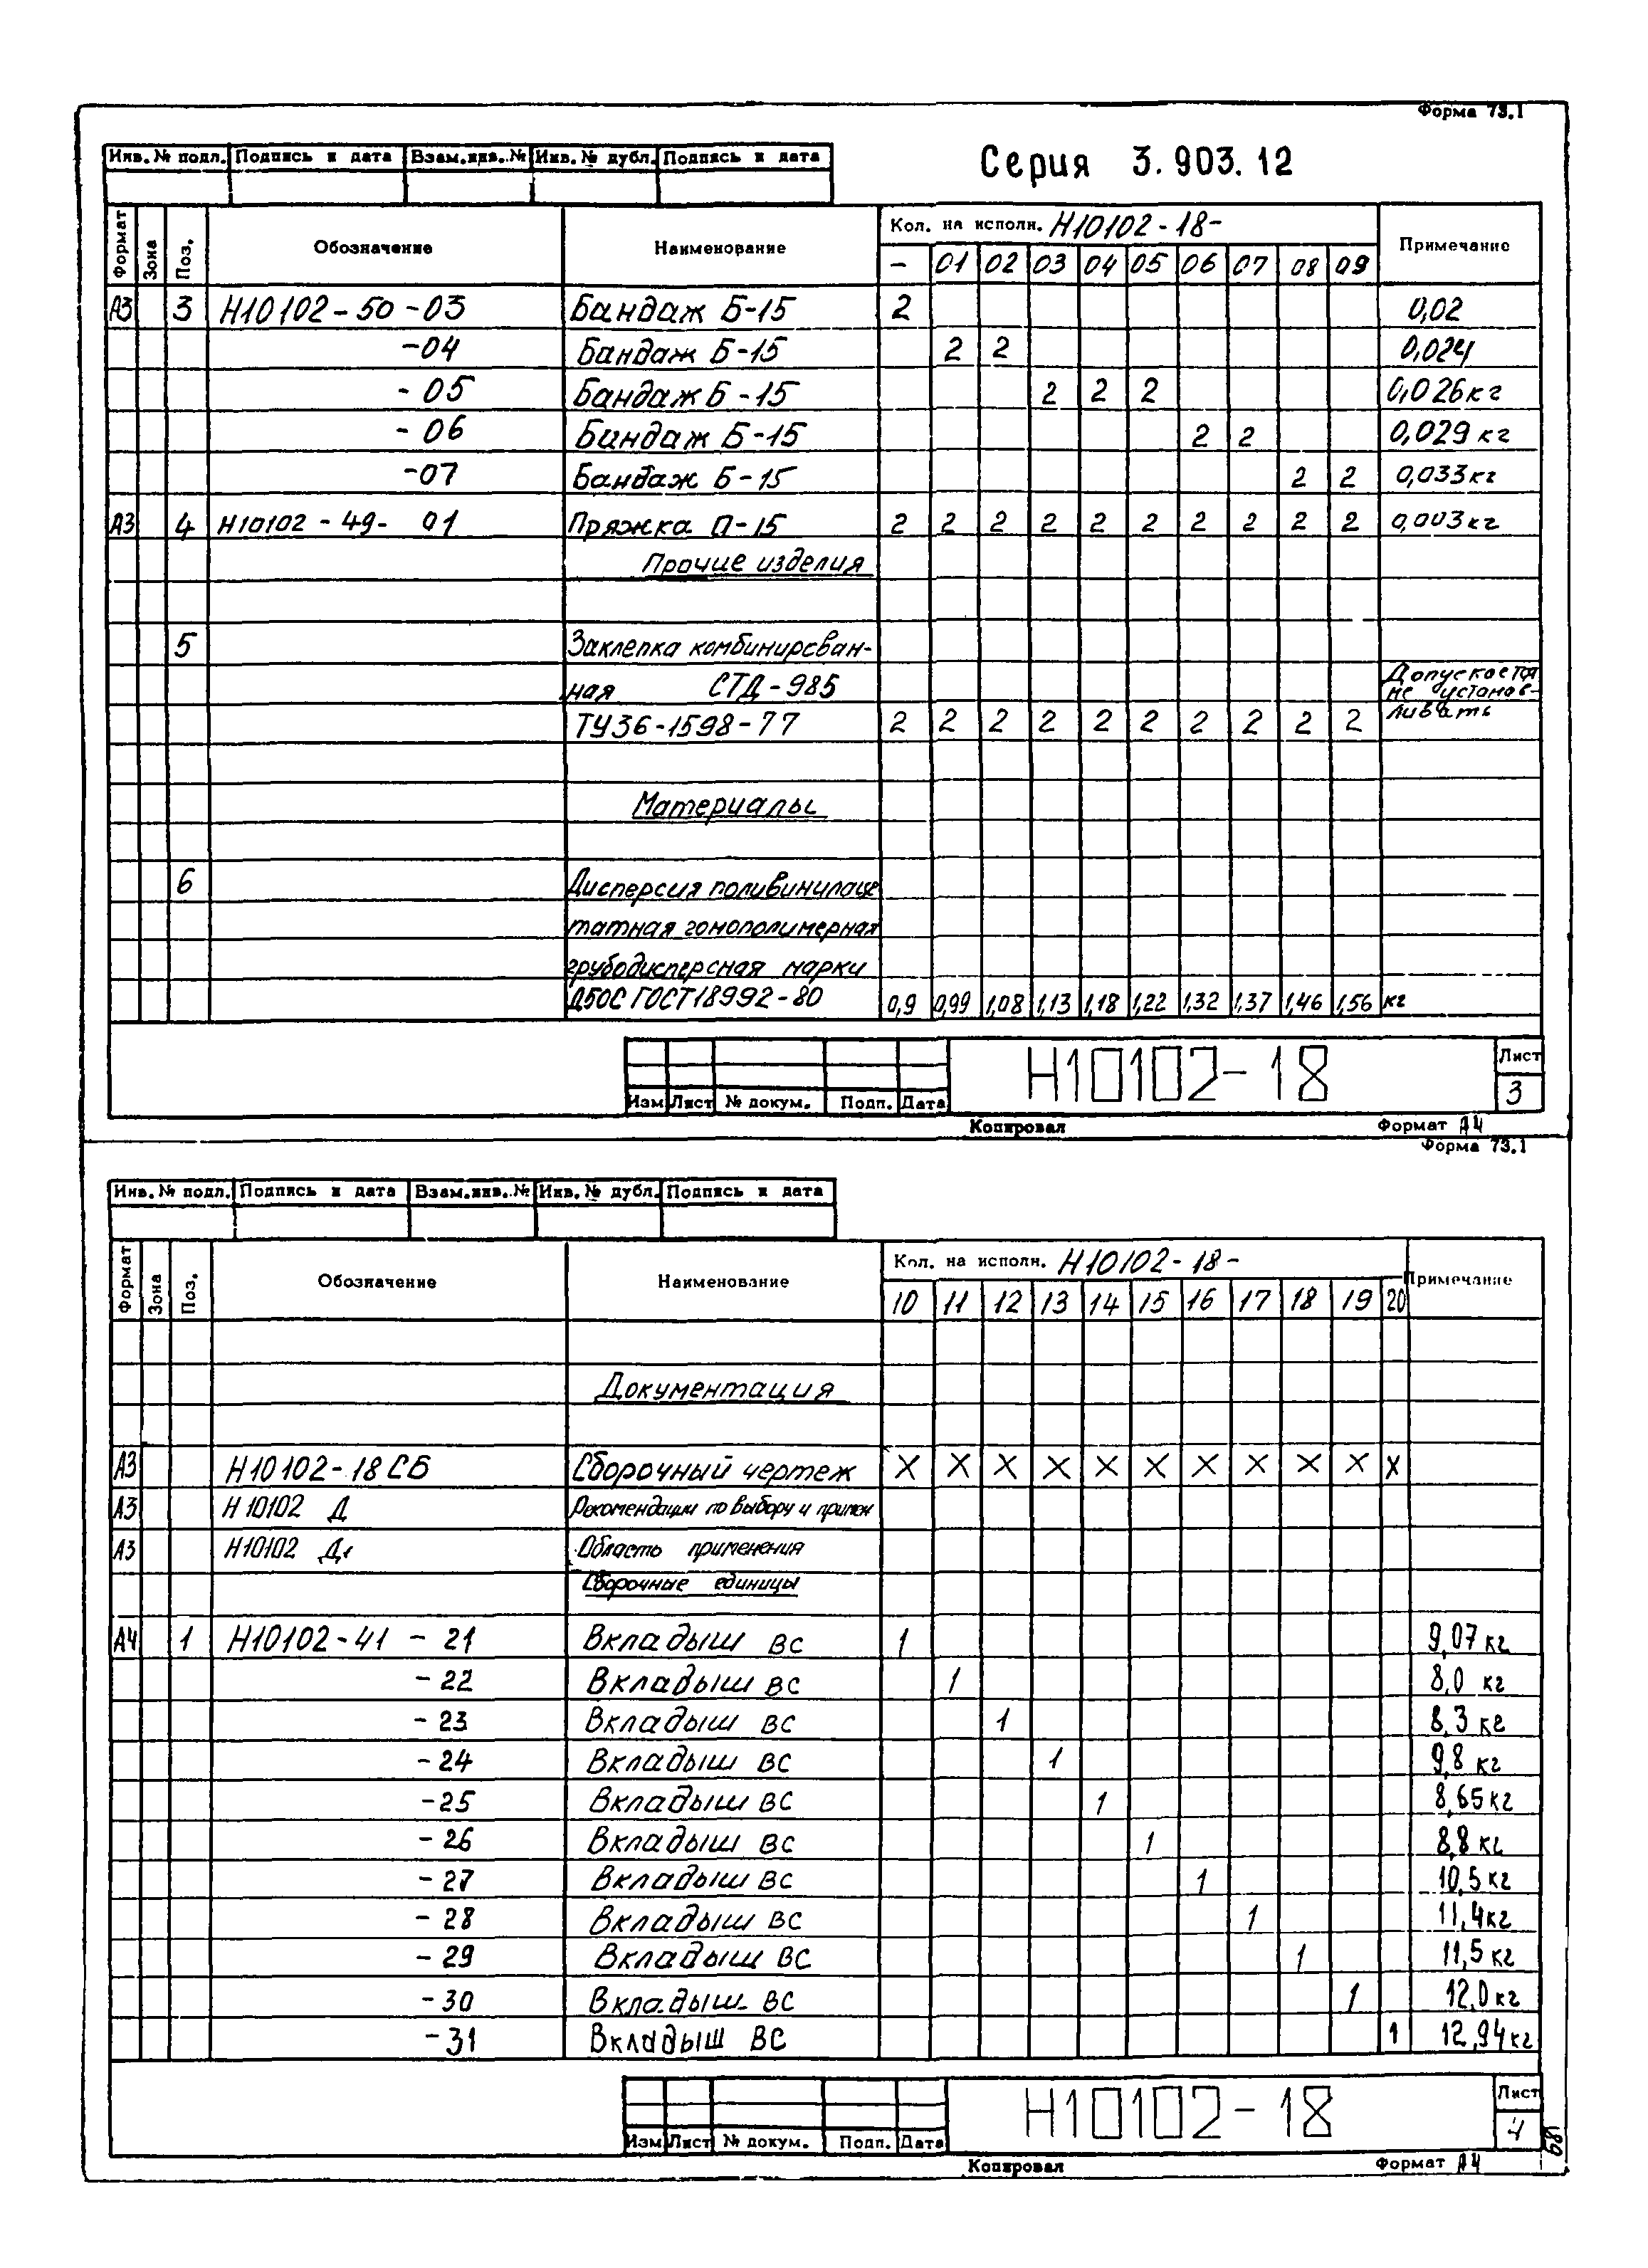 Форма 73.1
Инв. № подл. Подпись и дата Взам.инв.№ Инв. № дубл. Подпись и дата
Серия 3.903.12
Формат Зона Поз. Обозначение Наименование Кол. на исполн. Н10102-18- Примечание
- 01 02 03 04 05 06 07 08 09
А3 3 Н10102-50-03 Бандаж Б-15 2 0,02
-04 Бандаж Б-15 2 2 0,024
-05 Бандаж Б-15 2 2 2 0,026кг
-06 Бандаж Б-15 2 2 0,029 кг
-07 Бандаж Б-15 2 2 0,033кг
А3 4 Н10102-49-01 Пряжка П-15 2 2 2 2 2 2 2 2 2 2 0,003кг
Прочие изделия
5 Заклепка комбинирован-
ная СТД-985 Допускается
не устанав-
ТУ36-1598-77 2 2 2 2 2 2 2 2 2 2 ливать
Материалы
6 Дисперсия поливинилаце
татная гомополимерная
грубодисперсная марки
Д50С ГОСТ18992-80 0,9 0,99 1,08 1,13 1,18 1,22 1,32 1,37 1,46 1,56 кг
Изм Лист № докум. Подп. Дата Н10102-18 Лист 3
Копировал Формат А4
Форма 73.1
Инв. № подл. Подпись и дата Взам.инв.№ Инв. № дубл. Подпись и дата
Формат Зона Поз. Обозначение Наименование Кол. на исполн. Н10102-18- Примечание
10 11 12 13 14 15 16 17 18 19 20
Документация
А3 Н10102-18СБ Сборочный чертеж X X X X X X X X X X X
А3 Н10102 Д Рекомендации по выбору и примен
А3 Н10102 Д1 Область применения
Сборочные единицы
А4 1 Н10102-41-21 Вкладыш ВС 1 9,07 кг
-22 Вкладыш ВС 1 8,0 кг
-23 Вкладыш ВС 1 8,3 кг
-24 Вкладыш ВС 1 9,8 кг
-25 Вкладыш ВС 1 8,65 кг
-26 Вкладыш ВС 1 8,8 кг
-27 Вкладыш ВС 1 10,5 кг
-28 Вкладыш ВС 1 11,4кг
-29 Вкладыш ВС 1 11,5 кг
-30 Вкладыш ВС 1 12,0кг
-31 Вкладыш ВС 1 12,94кг
Изм Лист № докум. Подп. Дата Н10102-18 Лист 4
Копировал Формат А4